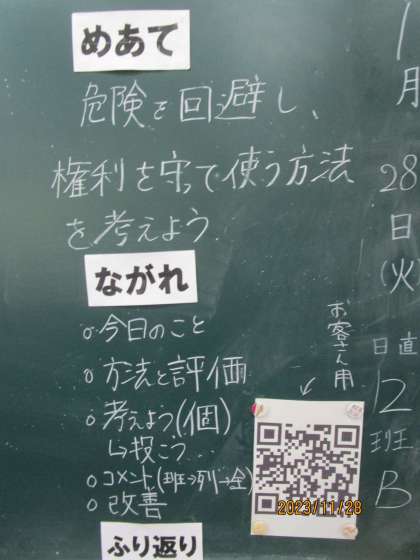 めあて
危険を回避し、
権利を守って使う方法
を考えよう
ながれ
○今日のこと
○方法と評価
○考えよう(個)
↳投こう‥
○コメント(班→列→全)
○改善
ふり返り
お客さん用
2023/11/28
月
28
日
(火)
日直
12
班
B